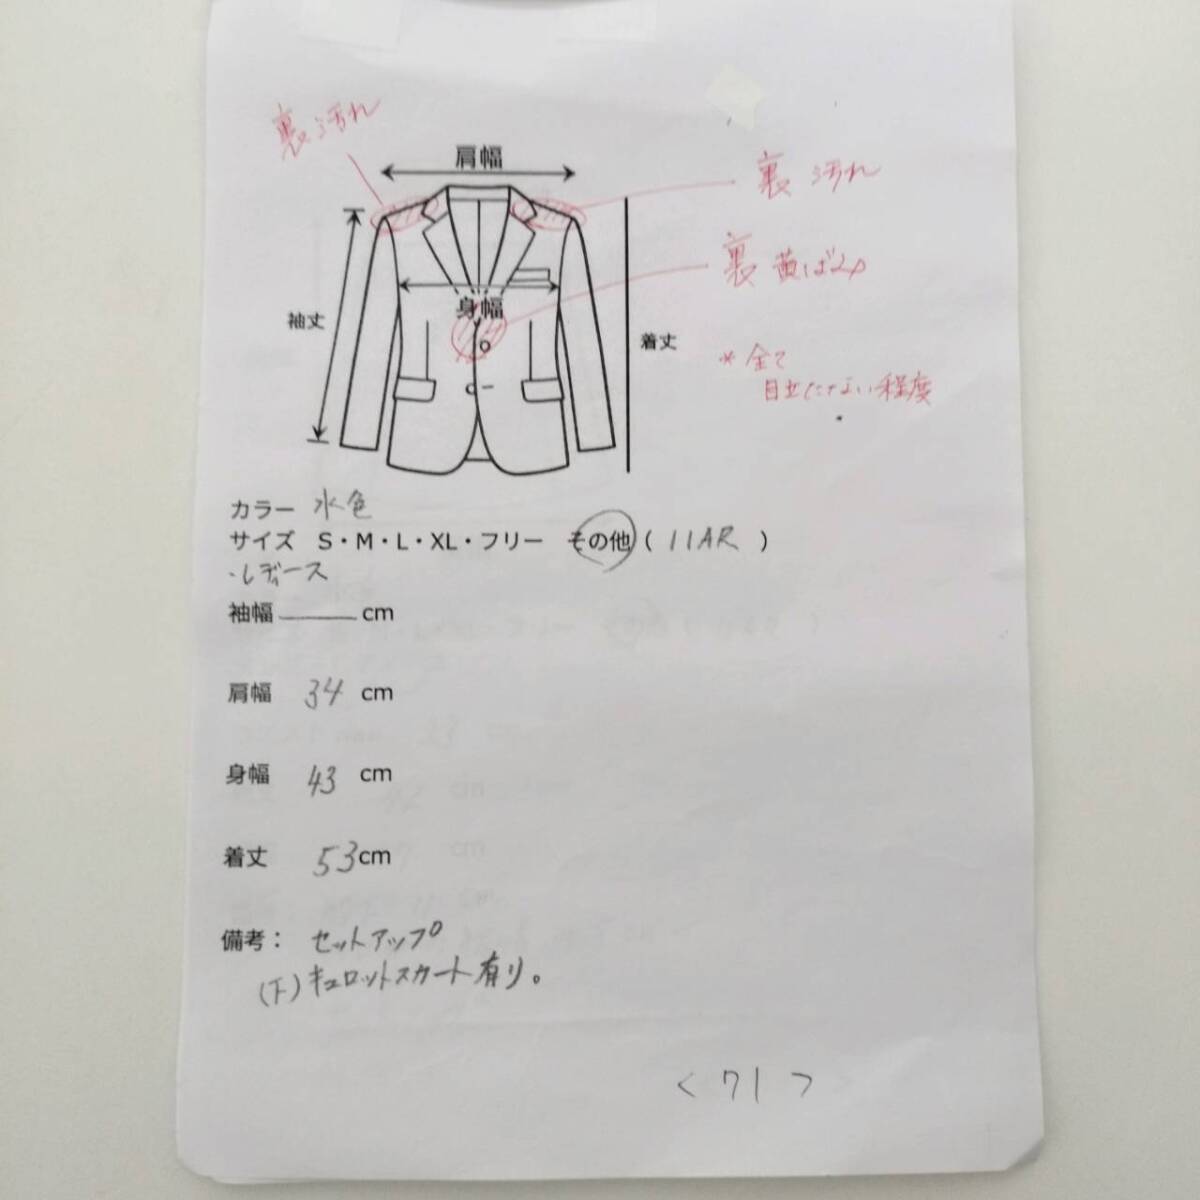 裏汚れ
肩幅
裏 汚れ
裏 黄ばみ
身幅
袖丈
着丈
*全て
目立たない程度
カラー 水色
サイズ S・M・L・XL・フリー その他 ( 11AR )
・レディース
袖幅 cm
肩幅 34 cm
身幅 43 cm
着丈 53 cm
備考: セットアップ
(下)キュロットスカート有り。
<71>